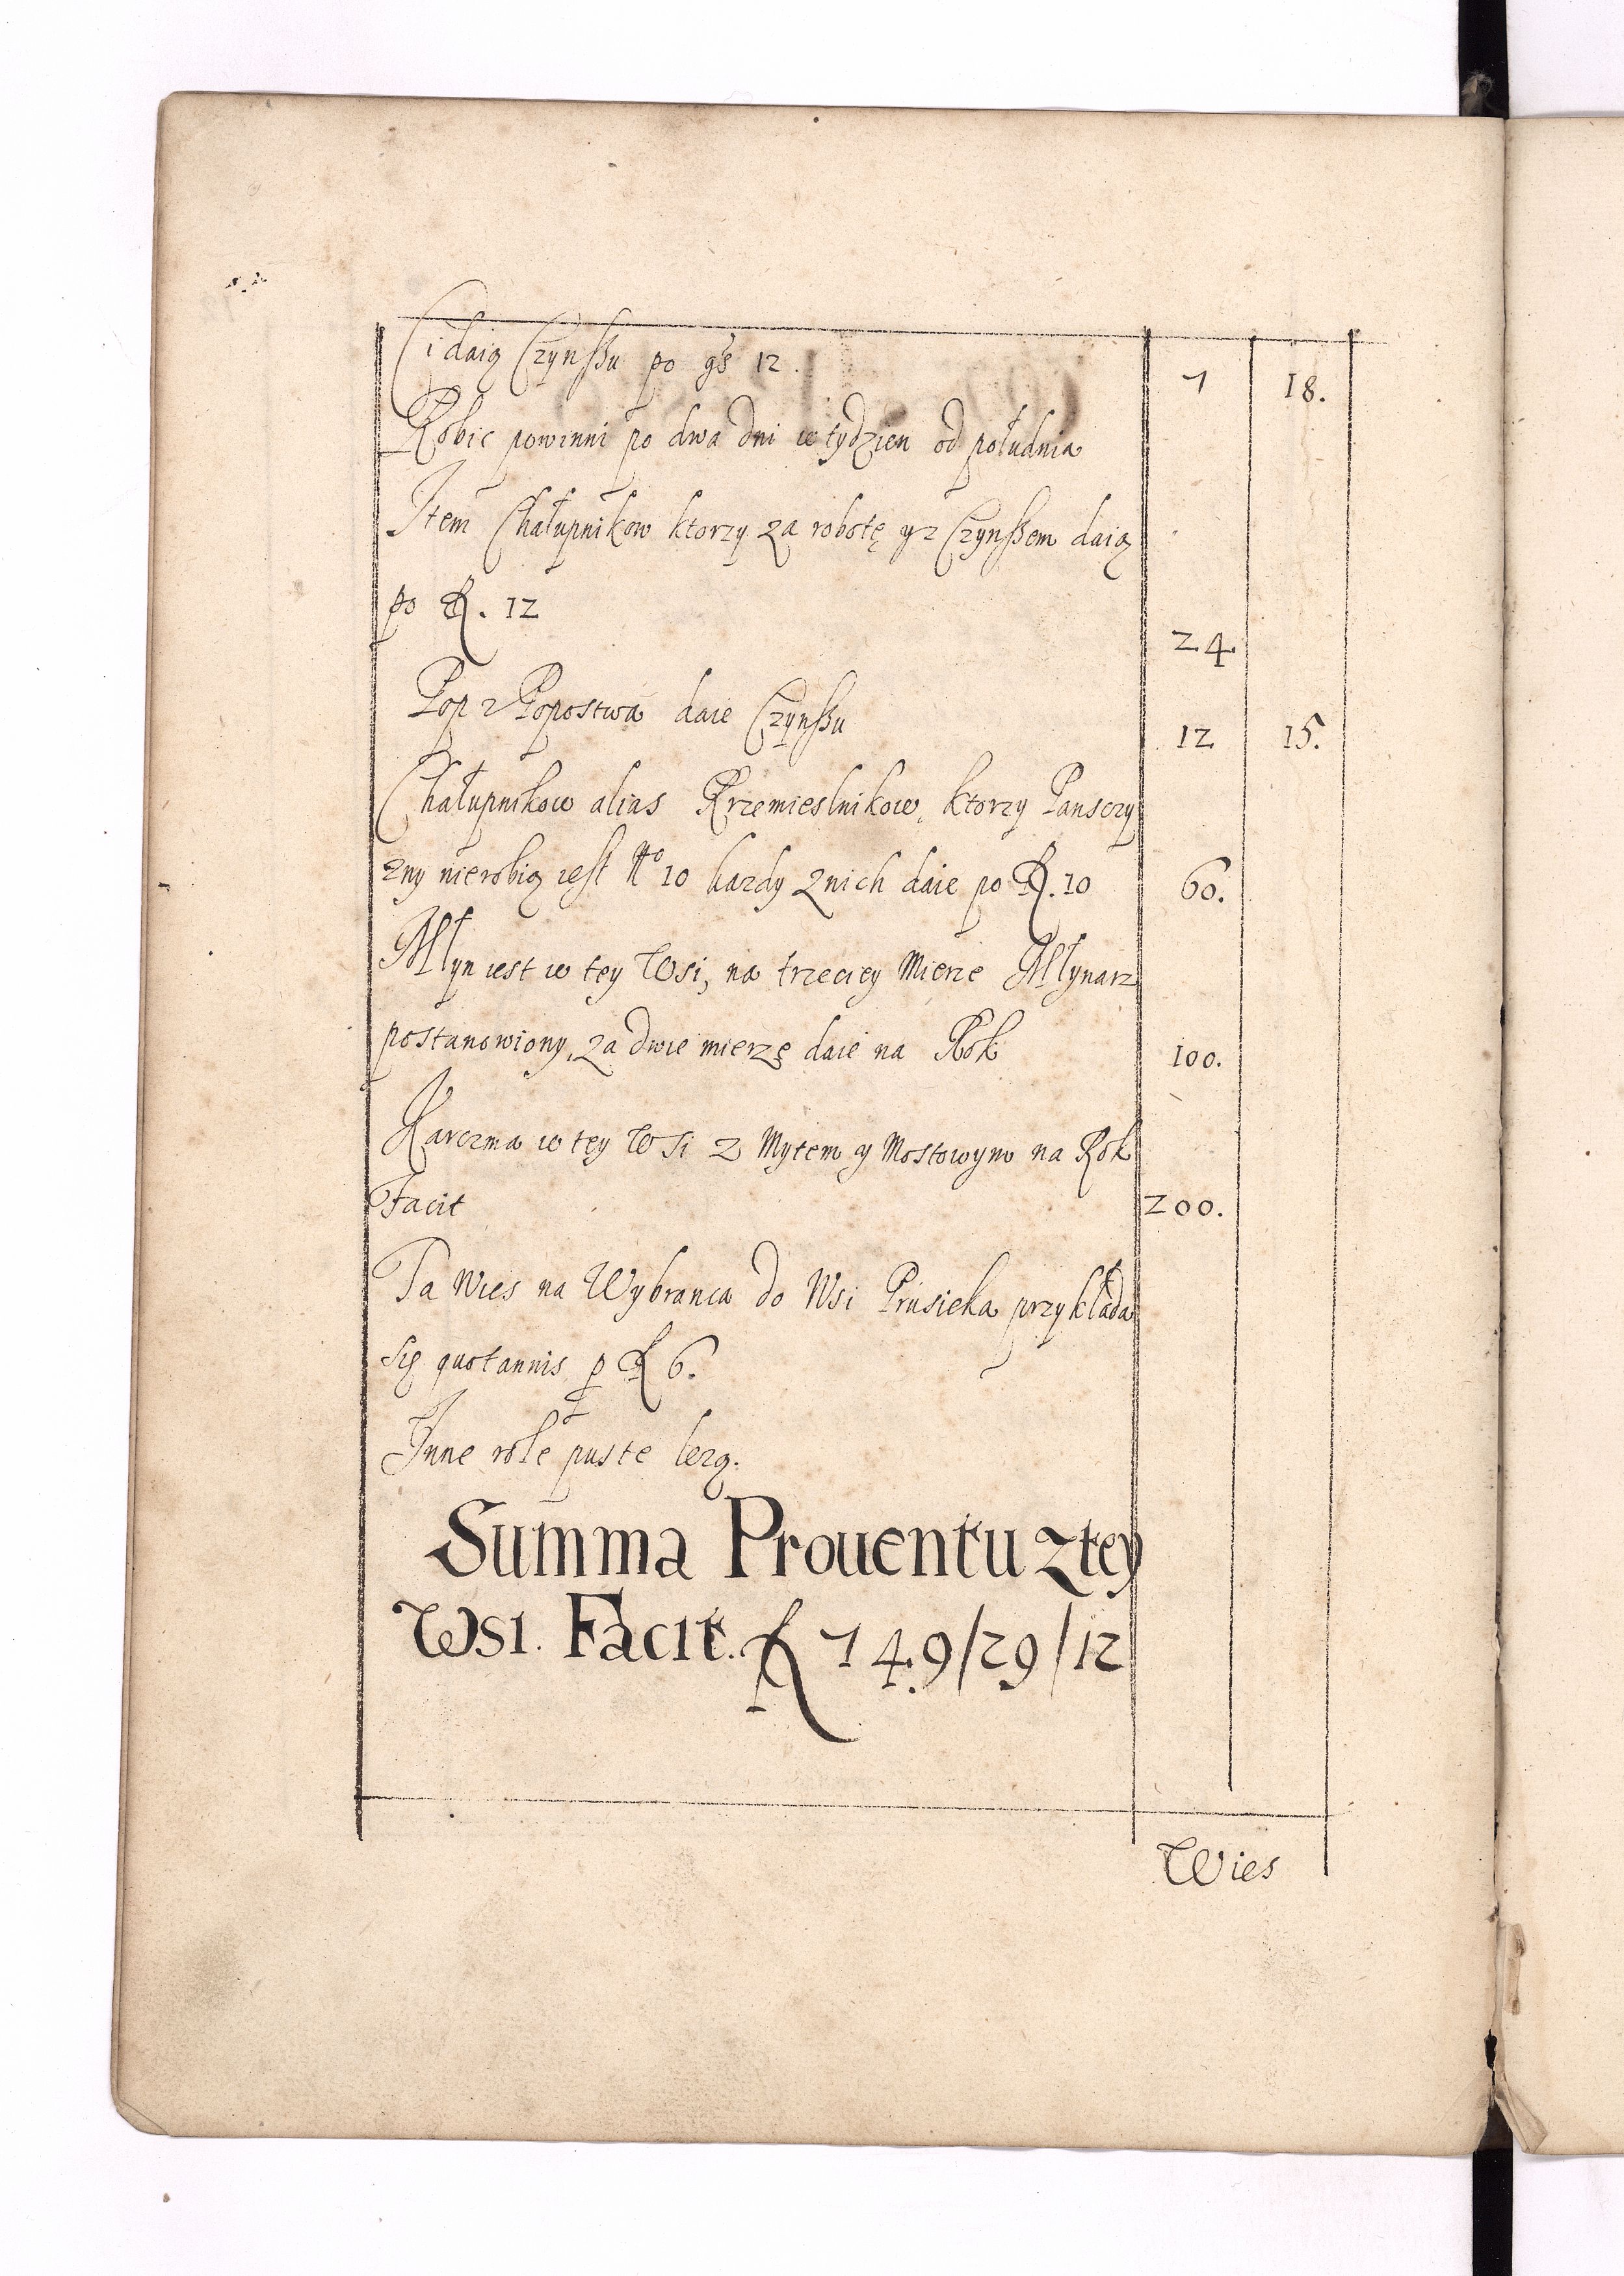 Ci daią Czynßu po gš 12. 7 18.
Robic powinni po dwa dni w tydzien od południa
Item Chałupnikow ktorzy za robotę y z Czynßem daią
po fl. 12 24
Pop z Popostwa daie Czynßu 12 15.
Chałupnikow alias Rzemieslnikow, ktorzy Pansczy
zny nierobią iest No 10 kazdy z nich daie po fl. 10 60.
Młyn iest w tey Wsi, na trzeciey Mierze Młynarz
postanowiony, za dwie mierzę daie na Rok 100.
Karczma w tey Wsi z Mytem y Mostowym na Rok
Facit 200.
Ta Wies na Wybranca do Wsi Prusieka przykłada
się quotannis p fl 6.
Inne role puste lezą.
Summa Prouentu z tey
Wsi. Facit. fl 749/29/12
Wies